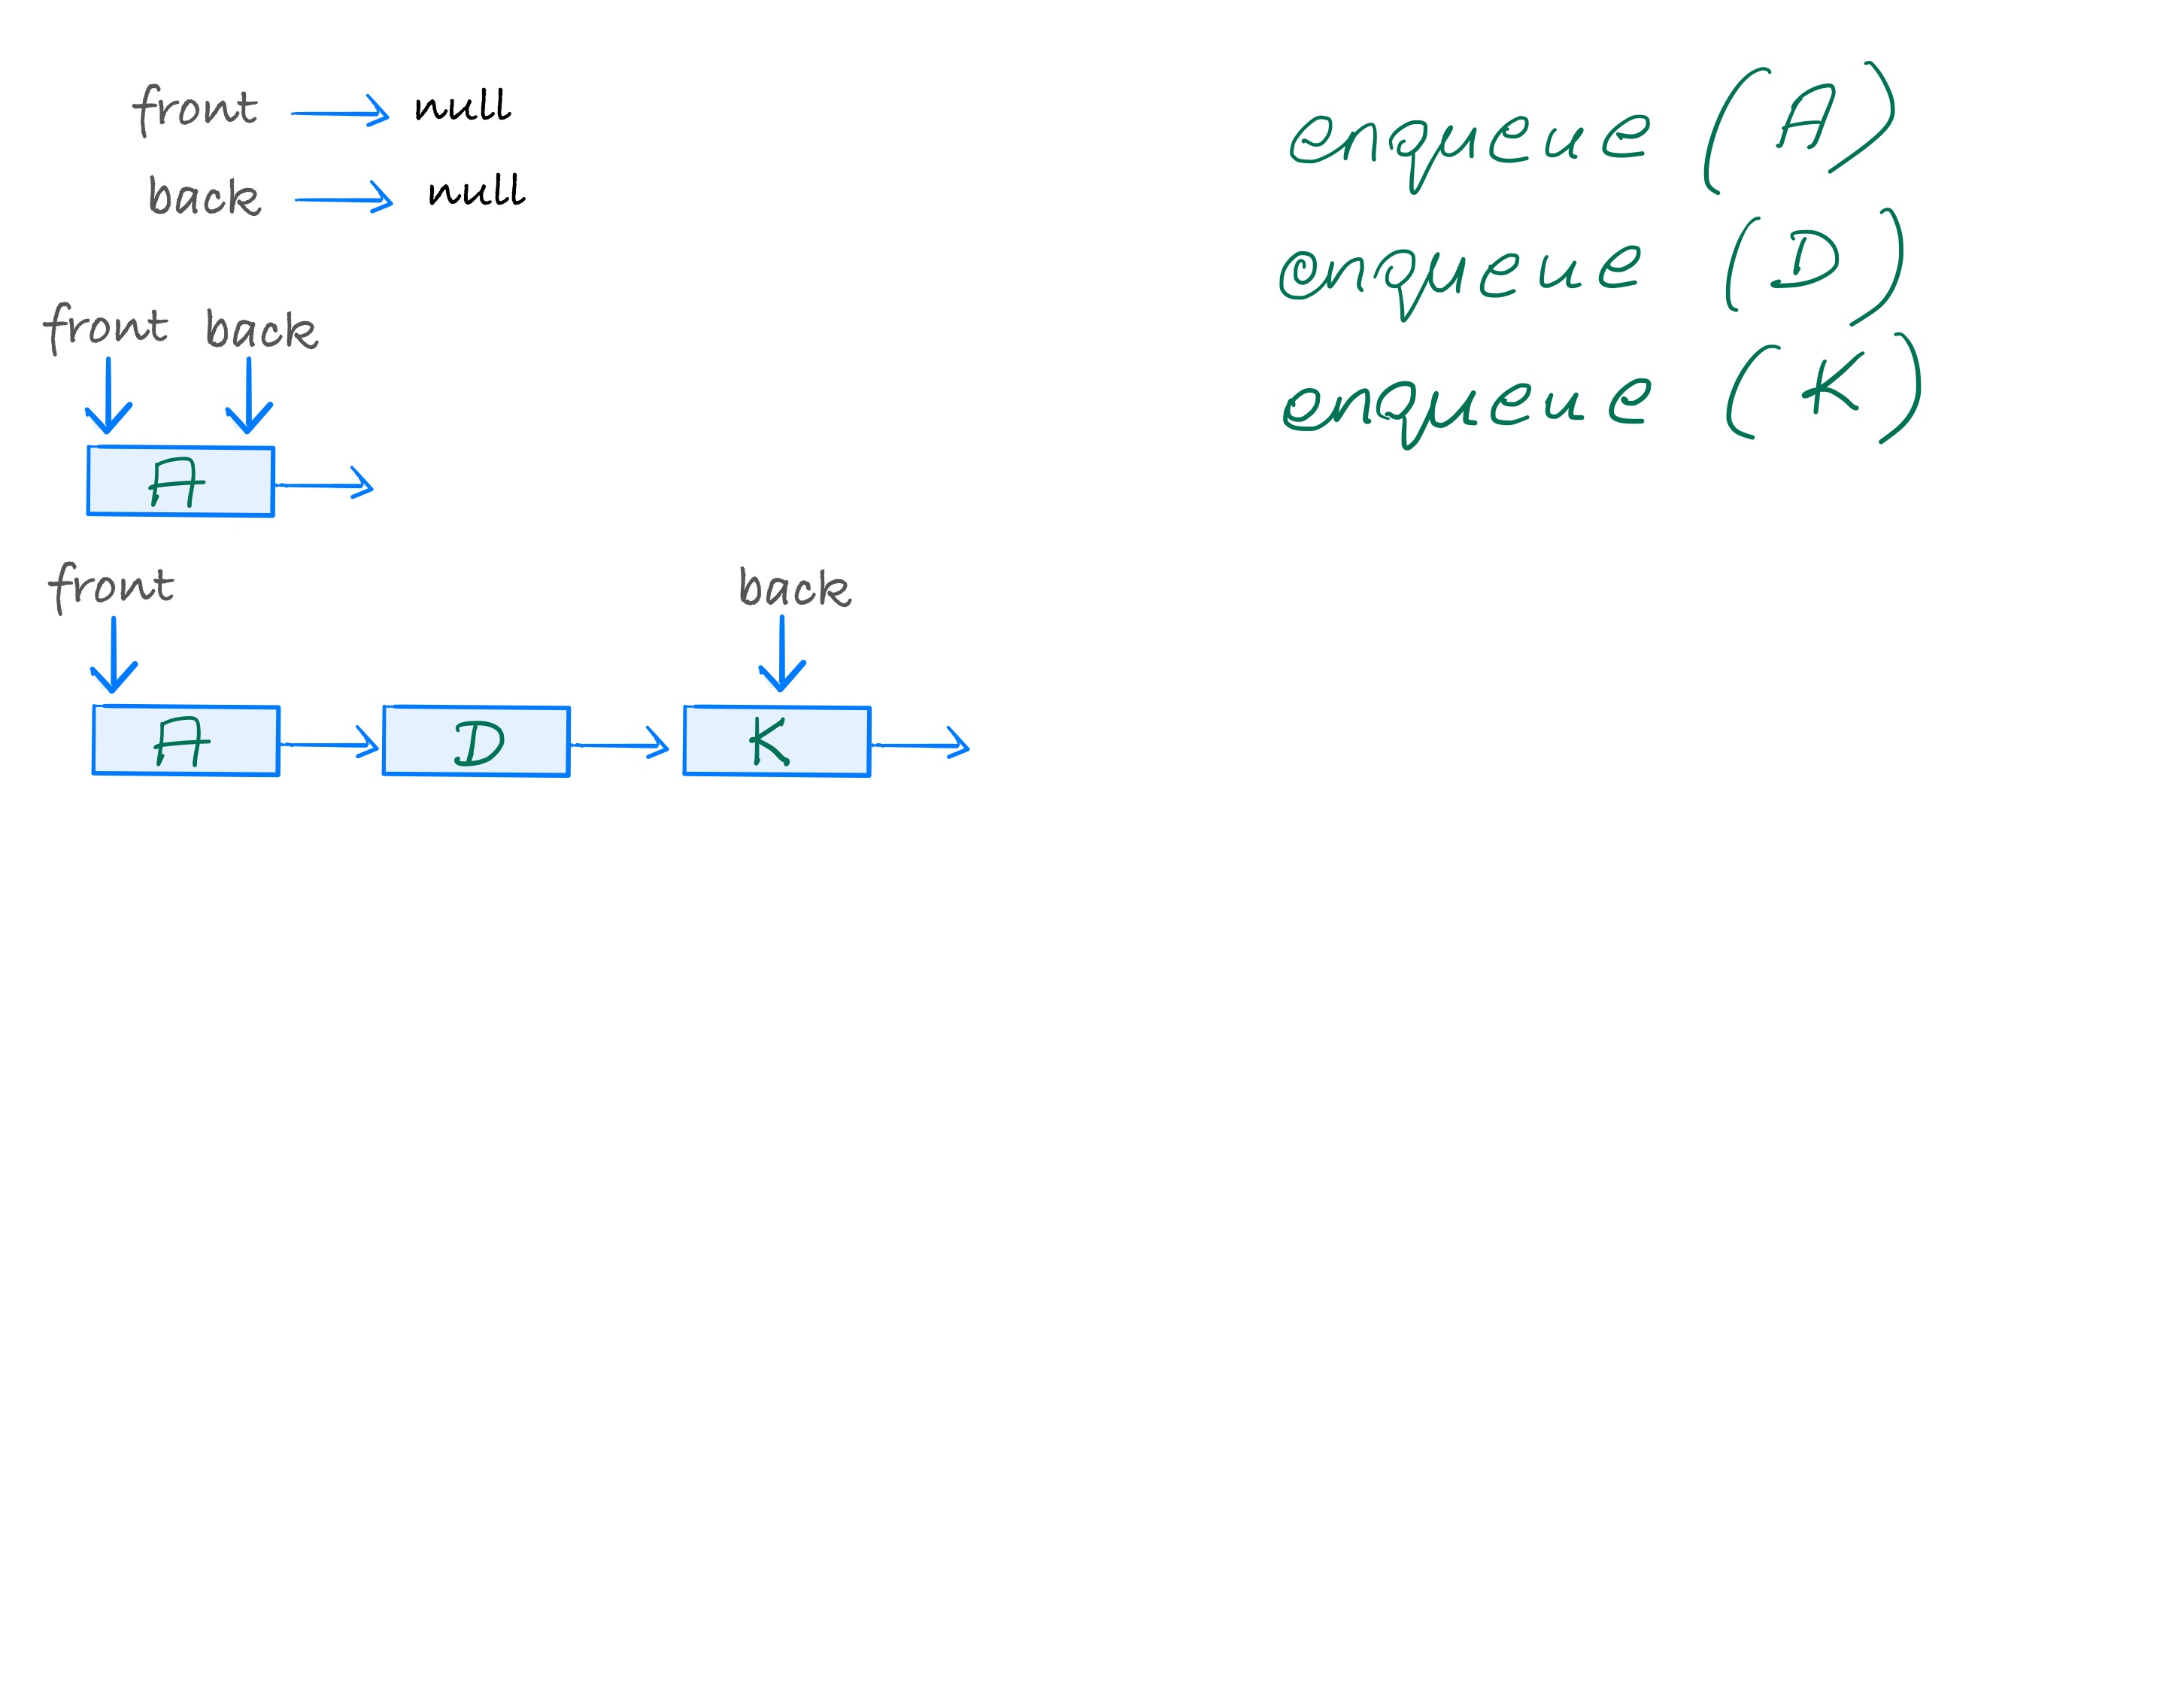 front → null
back → null
front back
A
front back
A → D → K →
enqueue (A)
enqueue (D)
enqueue (K)